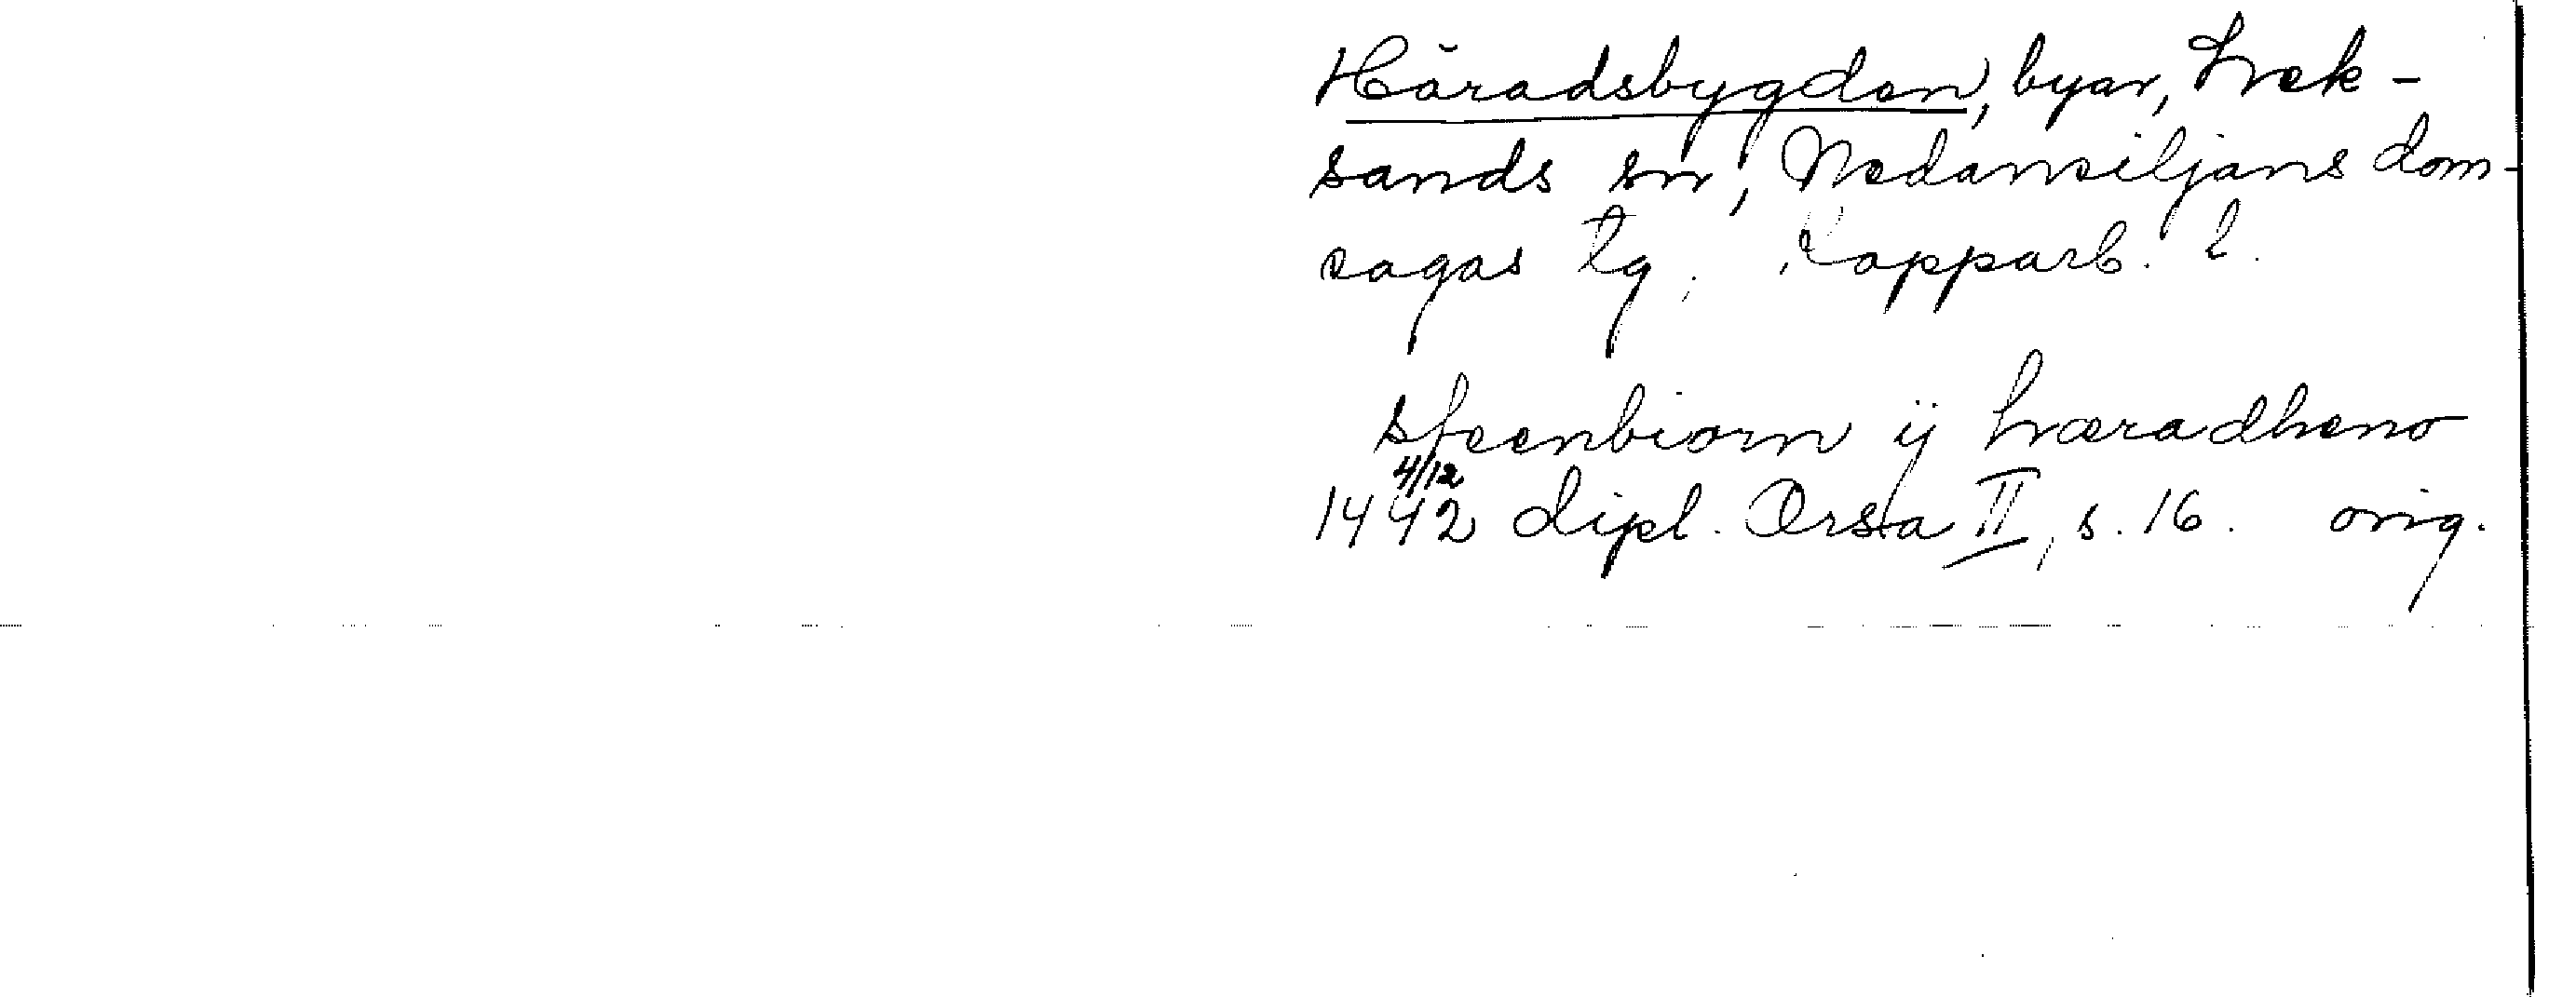 Häradsbygden, byar, Lek-
sands sn, Nedansiljans dom-
sagas tg, Kopparb. l.
steenbiorn ij hæradheno
4/12
1442 dipl. Orsa II, s. 16. orig.